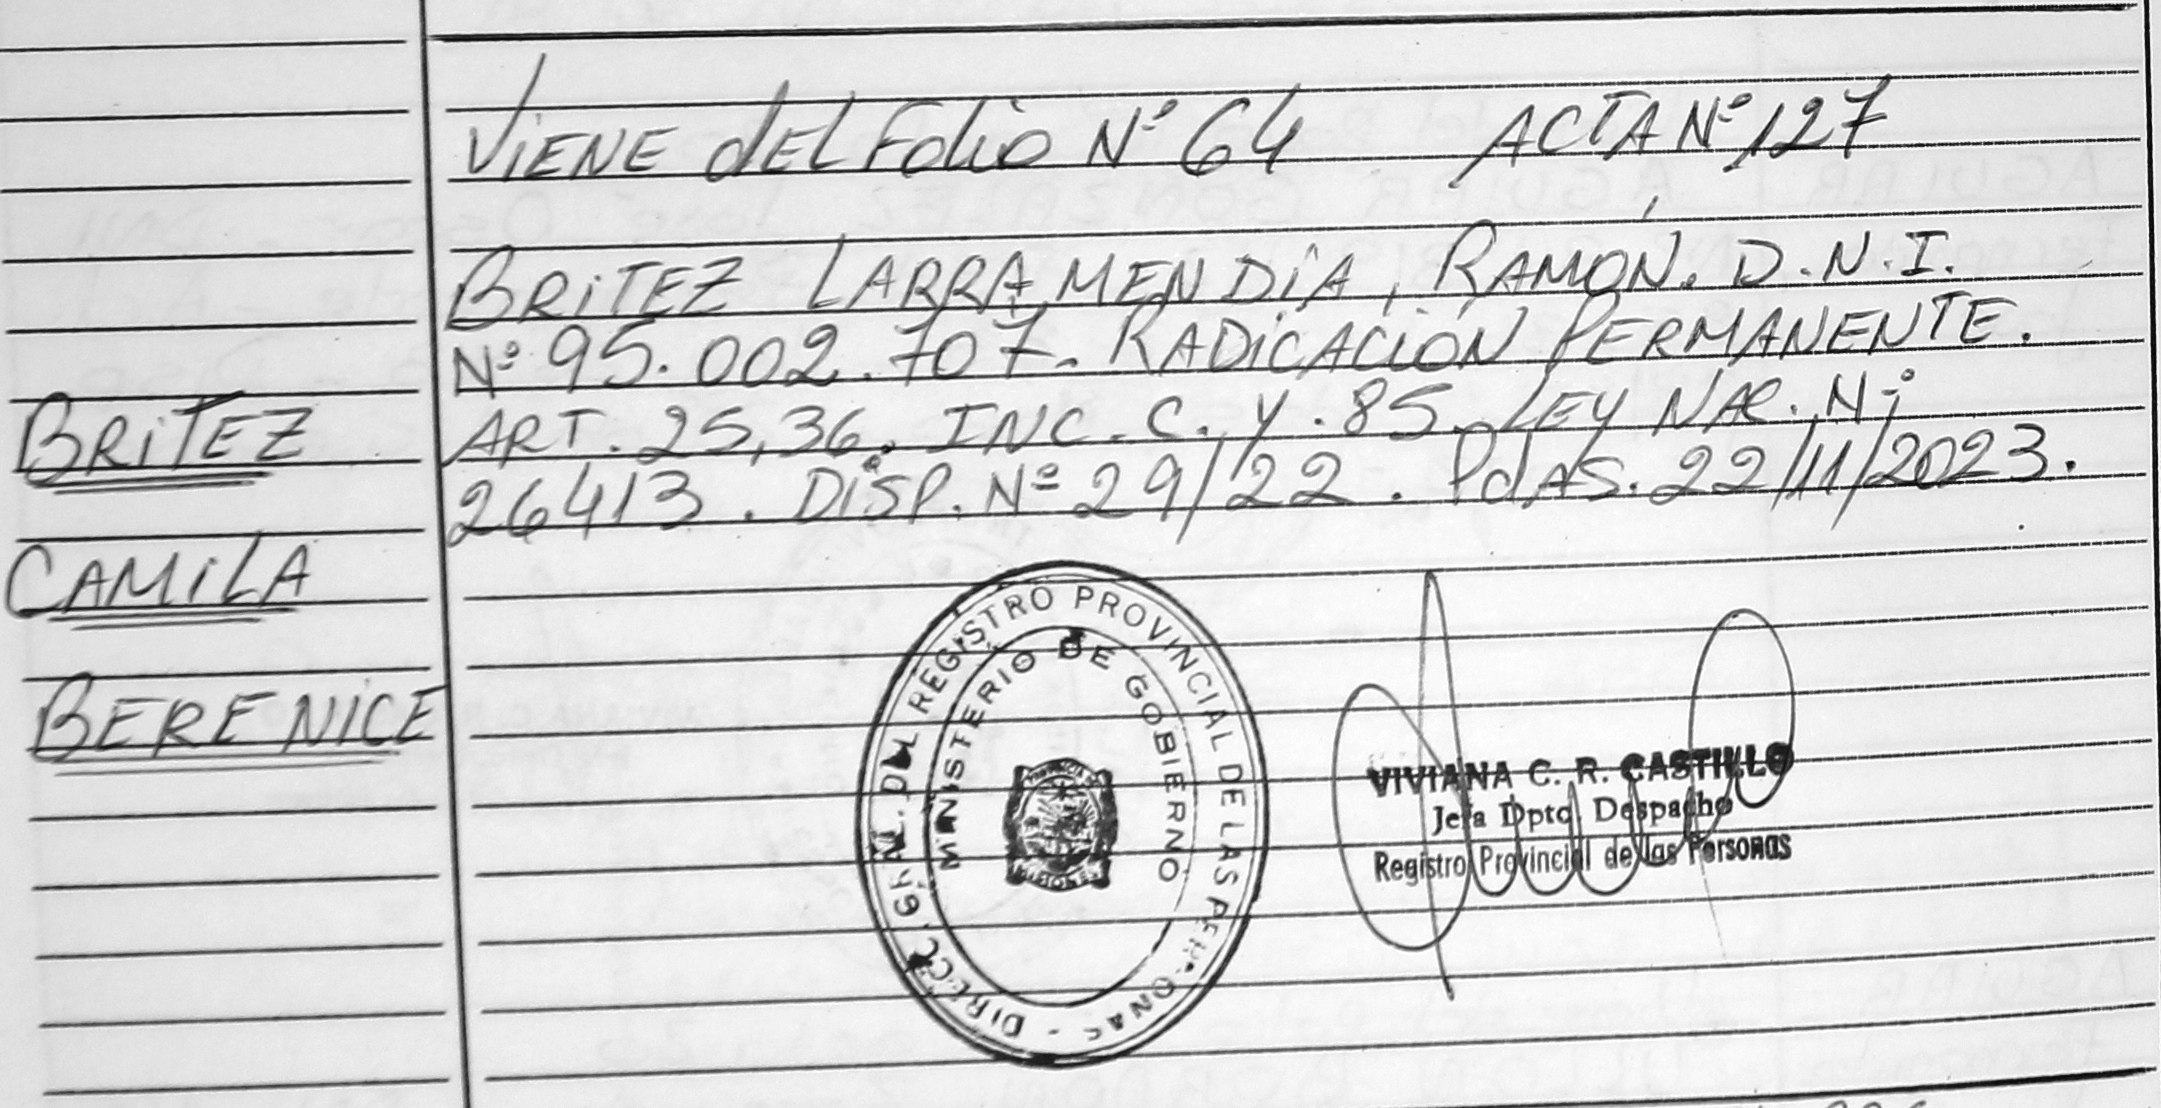 VIENE dEL Folio Nº 64 ACTA Nº 127
BRITEZ LARRAMENDIA, RAMÓN. D.N.I.
Nº 95.002.707. RADICACIÓN PERMANENTE.
ART. 25,36. INC. C. Y. 85. LEY NAC. Nº
26413. DISP. Nº 29/22. PdAS. 22/11/2023.
BRITEZ
CAMILA
BERENICE
DIRECC. GRAL. DEL REGISTRO PROVINCIAL DE LAS PERSONAS -
MINISTERIO DE GOBIERNO
MISIONES
VIVIANA C. R. CASTILLO
Jefa Dpto. Despacho
Registro Provincial de las Personas